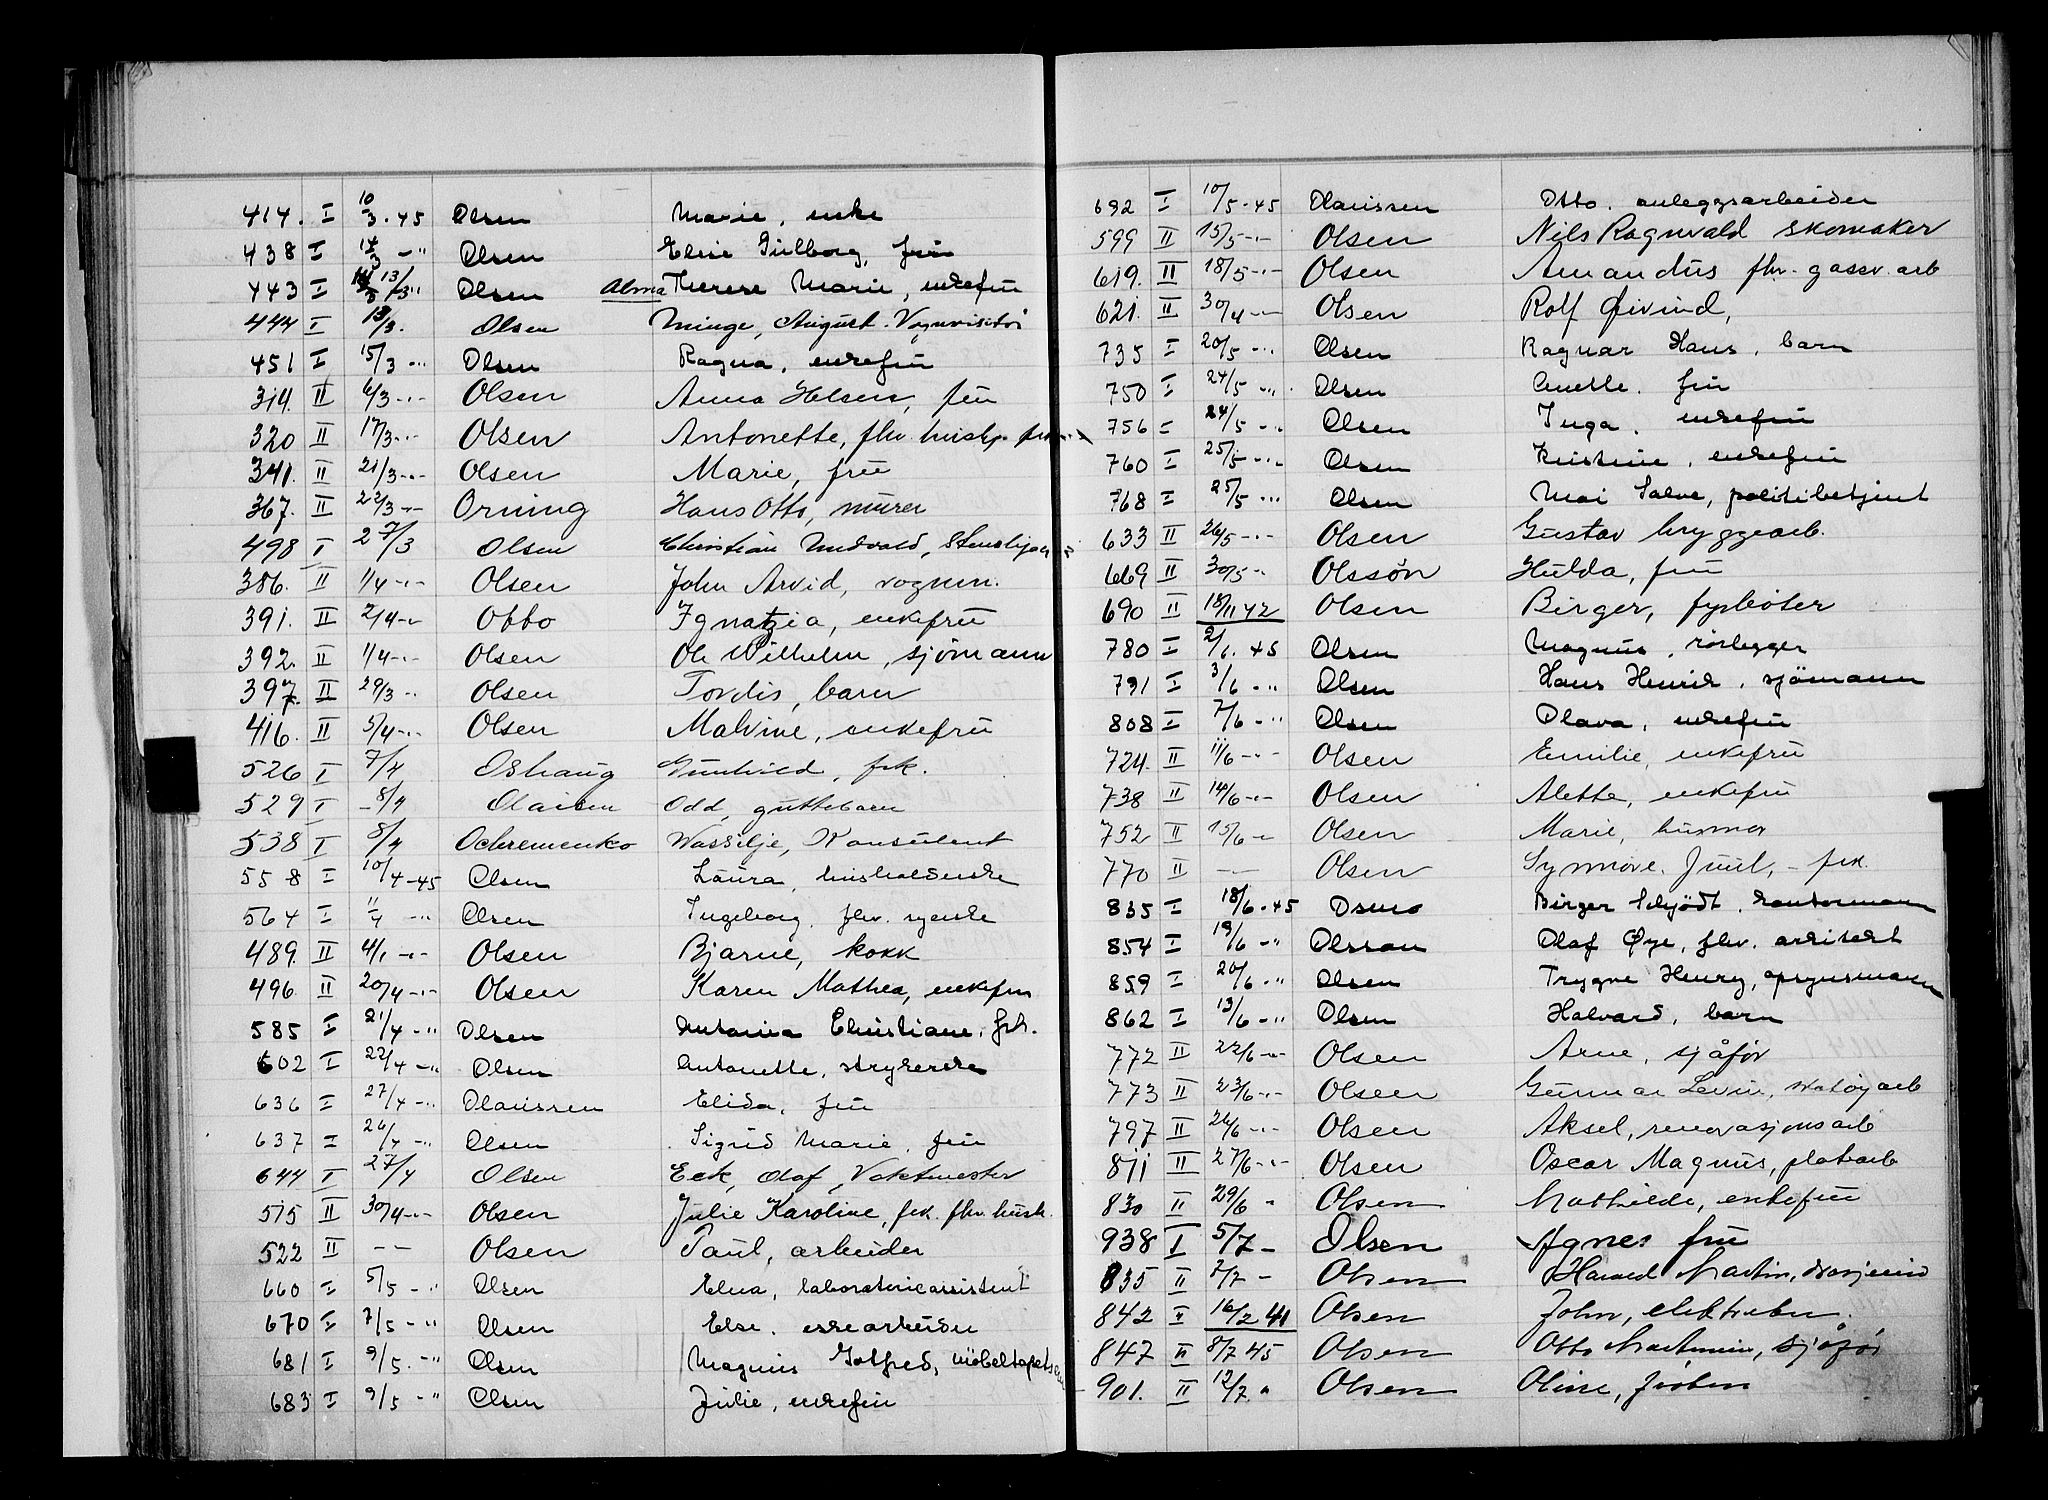 414. I 10/3 - 45 Olsen Marie, enke
438 I 14/3 -" Olsen Elise Gulborg, frue
443 I 13/3 " Olsen Alma Therese Marie, enkefru
444 I 13/3. Olsen Minge, August. Vognvisitør
451 I 15/3 -" Olsen Ragna, enkefru
314. II 6/3 -"- Olsen Anna Helene, fru
320 II 17/3 -"- Olsen Antonette, fhv. hush.
341. II 21/3 -"- Olsen Marie, frue
367. II 22/3 -"- Orning Hans Otto, murer
498 I 27/3 Olsen Christian
386. II 1/4 -"- Olsen John Arvid, vognm.
391. II 2/4 -"- Otto Ignatzia, enkefrue
392. II 1/4 -"- Olsen Ole Wilhelm, sjømann
397. II 29/3 -"- Olsen Tordis, barn
416. II 5/4 -"- Olsen Malvine, enkefrue
526 I 7/4 Oshaug Gunhild, frk.
529 I - 8/4 Olaisen Odd, guttebarn
538 I 8/4 Ochremenko Wassilje, Konsulent
558 I 10/4 - 45 Olsen Laura, husholderske
564 I 11/4 -" Olsen Ingeborg, fhv. syerske
489. II 4/1 -"- Olsen Bjarne, kokk
496. II 20/4 -"- Olsen Karen Mathea, enkefru
585 I 21/4 -" Olsen Antonia Christiane, frk.
602 I 22/4 -" Olsen Antonette, strykerske
636 I 27/4 -" Olaussen Elida, fru
637 I 26/4 -" Olsen Sigrid Marie, fru
644 I 27/4 Olsen Eek, Olaf, Vaktmester
515 II 30/4 -"- Olsen Julie Karoline, frk. fhv. hush.
522 II -- Olsen Paul, arbeider
660 I 5/5 -" Olsen Elna, laboratorieassistent
670 I 7/5 -" Olsen Else. eskearbeider
681 I 9/5. -" Olsen Magnus Gotfred, møbeltapets
683 I 9/5 -" Olsen Julie, enkefru
692 I 10/5 - 45 Olaussen Otto. anleggsarbeider
599 II 15/5 -"- Olsen Nils Ragnvald skomaker
619. II 18/5 -"- Olsen Amandus fhv. gassv. arb
621. II 30/4 -"- Olsen Rolf Øivind,
735 I 20/5 -" Olsen Ragnar Hans, barn
750 I 24/5 -" Olsen Anette. fru
756 I 24/5 -" Olsen Inga, enkefru
760 I 25/5 -" Olsen Kristine, enkefru
768 I 25/5 -" Olsen Mai Salve, politibetjent
633 II 26/5 -"- Olsen Gustav bryggearb.
669 II 30/5 -"- Olssøn Hulda, frue
690 II 18/11 42 Olsen Birger, fyrbøter
780 I 2/6. 45 Olsen Magnus, rørlegger
791 I 3/6 -" Olsen Hans Henrik, sjømann
808 I 7/6 -" Olsen Olava, enkefru
724. II 11/6 -"- Olsen Emilie, enkefrue
738 II 14/6 -"- Olsen Alette, enkefrue
752 II 15/6 -"- Olsen Marie, husmor
770 II -- Olsen Synnøve Juul, - frk.
835 I 18/6 - 45 Osmo Birger Schjødt, kontormann
854 I 19/6 -" Olsson Olaf Øye, fhv. arkitekt
859 I 20/6 -" Olsen Trygve Henry, opsynsmann
862 I 13/6 -" Olsen Halvard, barn
772 II 22/6 -"- Olsen Arne, sjåfør
773 II 23/6 -"- Olsen Gunnar Levin,
797 II 24/6 -"- Olsen Aksel, renovasjonsarb
811 II 27/6 -"- Olsen Oscar Magnus, platearb
830 II 29/6 " Olsen Mathilde, enkefrue
938 I 5/7 - Olsen Agnes frue
835 II 7/7 - Olsen Harald Martin,
842 II 16/2 41 Olsen John,
847 II 8/7 45 Olsen Otto Martinius, sjåfør
901. II 12/7 " Olsen Oline, frøken